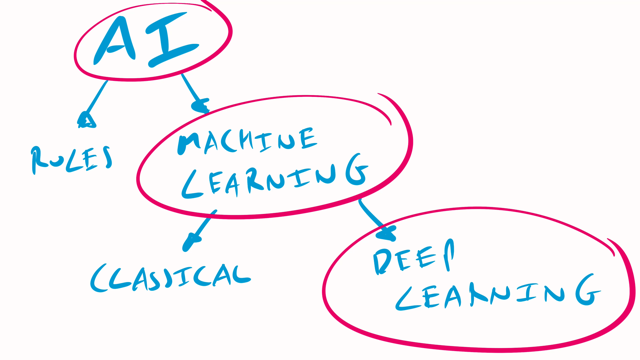 AI
RULES
MACHINE
LEARNING
CLASSICAL
DEEP
LEARNING